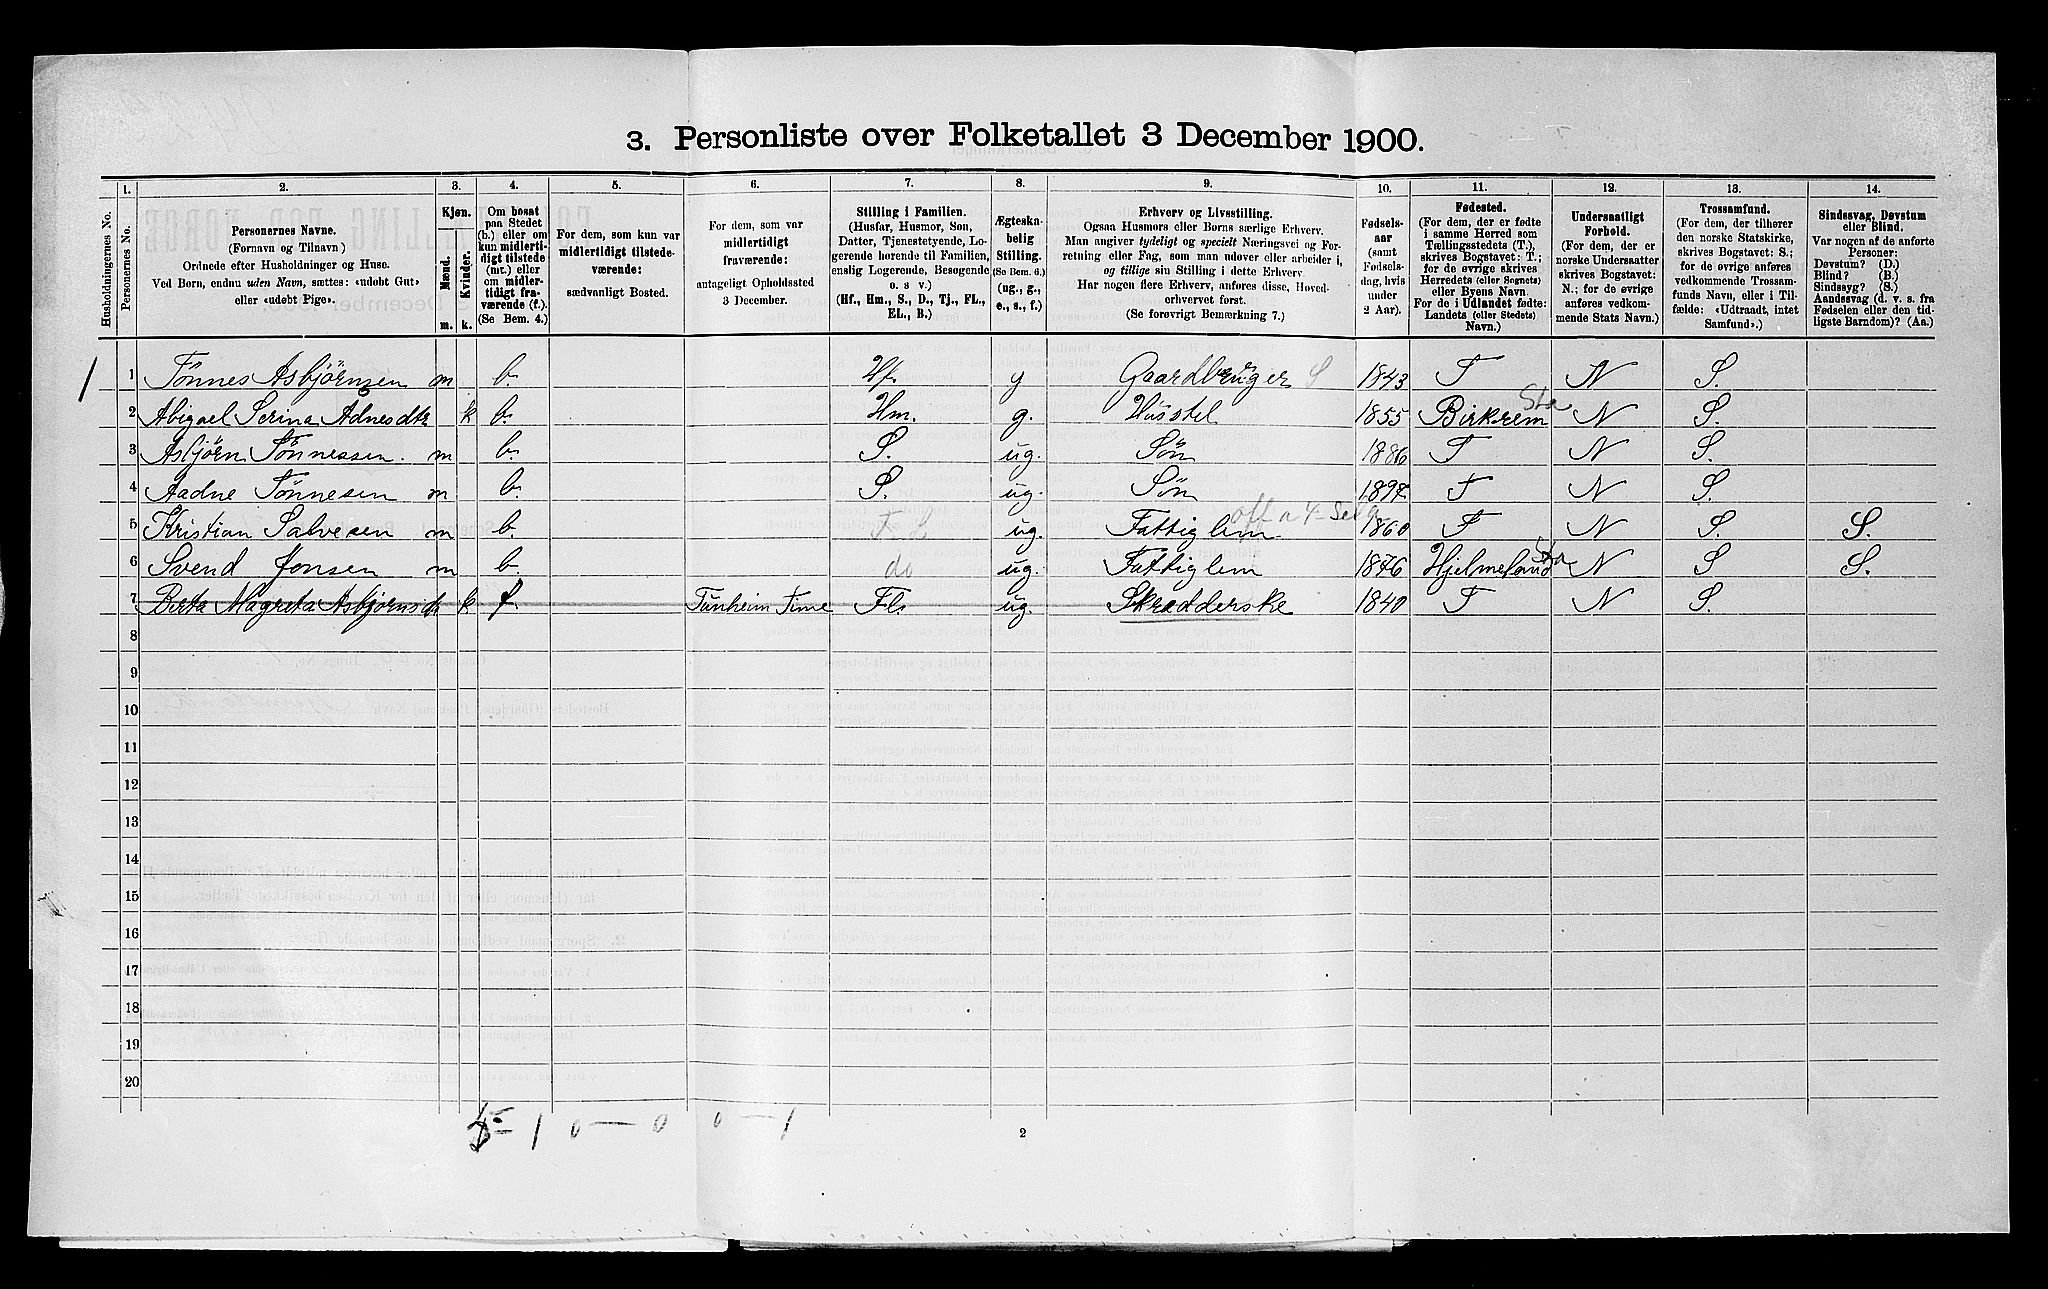 3. Personliste over Folketallet 3 December 1900.
Husholdningernes No.
1. Personernes No.
2.
Personernes Navne.
(Fornavn og Tilnavn)
Ordnede efter Husholdninger og Huse.
Ved Børn, endnu uden Navn, sættes: «udøbt Gut»
eller «udøbt Pige».
3.
Kjøn.
Mænd. Kvinder.
m. k.
4.
Om bosat
paa Stedet
(b.) eller om
kun midlerti-
digt tilstede
(mt.) eller
om midler-
tidigt fra-
værende (f.).
(Se Bem. 4.)
5.
For dem, som kun var
midlertidigt tilstede-
værende:
sædvanligt Bosted.
6.
For dem, som var
midlertidigt
fraværende:
antageligt Opholdssted
3 December.
7.
Stilling i Familien.
(Husfar, Husmor, Søn,
Datter, Tjenestetyende, Lo-
gerende hørende til Familien,
enslig Logerende, Besøgende
o. s v.)
(Hf., Hm., S., D., Tj., FL.,
EL., B.)
8.
Ægteska-
belig
Stilling.
(So Bem. 6.)
(ug., g.,
e., s., f.)
9.
Erhverv og Livsstilling.
Ogsaa Husmors eller Børns særlige Erhverv.
Man angiver tydeligt og specielt Næringsvei og For-
retning eller Fag, som man udøver eller arbeider i,
og tillige sin Stilling i dette Erhverv
Har nogen flere Erhverv, anføres disse, Hoved-
erhvervet først.
(Se forøvrigt Bemærkning 7.)
10.
Fødsels-
aar
(samt
Fødsels-
dag, hvis
under
2 Aar).
11.
Fødested.
(For dem, der er fødte
i samme Herred som
Tællingsstedets (T.),
skrives Bogstavet: T.;
for de øvrige skrives
Herredets (eller Sognets)
eller Byens Navn.
For de i Udlandet fødte:
Landets (eller Stedets)
Navn.)
12.
Undersaatligt
Forhold.
(For dem, der er
norske Undersaatter
skrives Bogstavet:
N.; for de øvrige
anføres vedkom-
mende Stats Navn.)
13.
Trossamfund.
(For dem, der tilhører
den norske Statskirke,
skrives Bogstavet: S.;
for de øvrige anføres
vedkommende Trossam-
funds Navn, eller i Til-
fælde: «Udtraadt, intet
Samfund».)
14.
Sindssvag, Døvstum
eller Blind.
Var nogen af de anførte
Personer:
Døvstum? (D.)
Blind? (B.)
Sindssyg? (S.)
Aandssvag (d. v. s. fra
Fødselen eller den tid-
ligste Barndom)? (Aa.)
1 1 Tönnes Asbjörnsen m b. Hf. g Gaardbruger S 1843 T N S.
2 Abigael Serina Adnesdtr k b. Hm. g. Husstel 1855 Birkrem Sta N S.
3 Asbjörn Tönnessen. m b. S. ug. Søn 1886 T N S.
4 Aadne Tönnesen m b. S. ug. Søn 1897 T N S.
5 Kristian Salvesen m b. F. L ug. Fattiglem 1860 T N S. S.
6 Svend Jonsen m b. do ug. Fattiglem 1876 Hjelmeland Sta N S S.
7 Berta Magreta Asbjörnsdt k f. Tunheim Time Fl. ug. Skrædderske 1840 T N S.
8
9
10
11
12
13
14
15
16
17
18
19
20
5 – 1 0 – 0 0 – 1
2